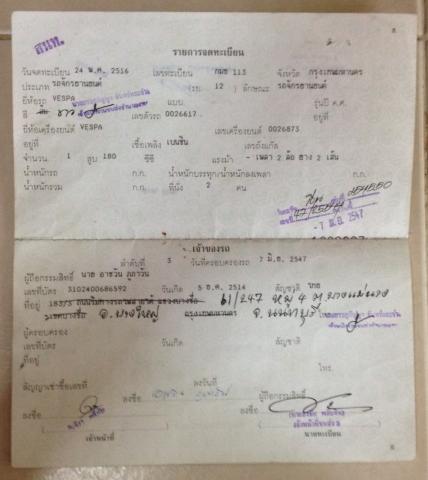 สนท.
รายการจดทะเบียน
วันจดทะเบียน 24 พ.ค. 2516 เลขทะเบียน กมธ 113 จังหวัด กรุงเทพมหานคร
ประเภท รถจักรยานยนต์ (รย. 12 ) ลักษณะ รถจักรยานยนต์
ยี่ห้อรถ VESPA แบบ รุ่นปี ค.ศ.
สี ขาว เลขตัวรถ 0026617 อยู่ที่
ยี่ห้อเครื่องยนต์ VESPA เลขเครื่องยนต์ 0026873
อยู่ที่ เชื้อเพลิง เบนซิน เลขถังแก๊ส
จำนวน 1 สูบ 180 ซีซี แรงม้า - เพลา 2 ล้อ ยาง 2 เส้น
น้ำหนักรถ ก.ก. น้ำหนักบรรทุก/น้ำหนักลงเพลา ก.ก.
น้ำหนักรวม ก.ก. ที่นั่ง 2 คน
- 7 มิ.ย. 2547
เจ้าของรถ
ลำดับที่ 3 วันที่ครอบครองรถ 7 มิ.ย. 2547
ผู้ถือกรรมสิทธิ์ นาย อาชวัน ภูภาวัน
เลขที่บัตร 3102400686592 วันเกิด 5 ธ.ค. 2514 สัญชาติ ไทย
ที่อยู่ 183/5 61/247 หมู่ 4 ต.บางแม่นาง
อ.บางใหญ่ กรุงเทพมหานคร จ.นนทบุรี โทร.
ผู้ครอบครอง
เลขที่บัตร วันเกิด สัญชาติ
ที่อยู่
โทร.
สัญญาเช่าซื้อเลขที่ ลงวันที่
ลงชื่อ ผู้ถือกรรมสิทธิ์
ลงชื่อ ลงชื่อ
เจ้าหน้าที่ นายทะเบียน